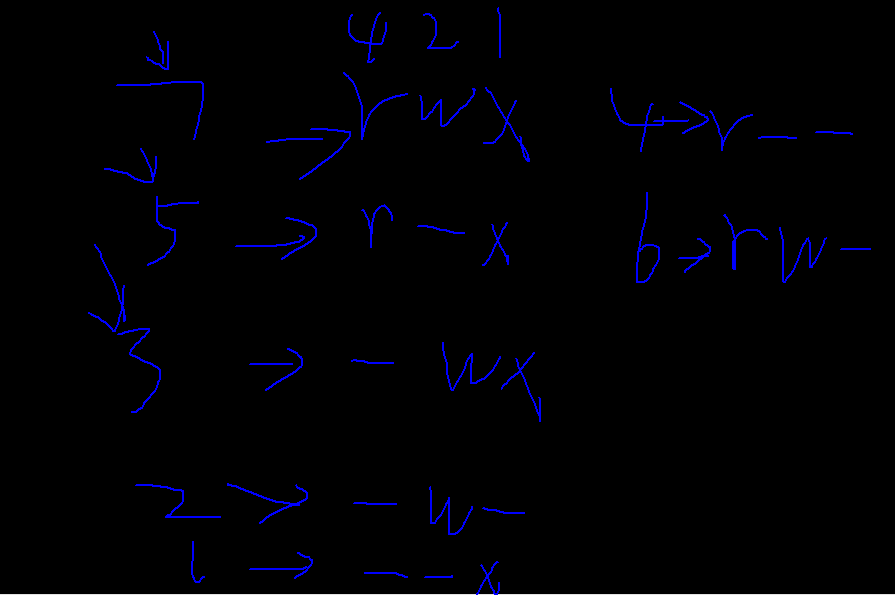 4 2 1
7 → rwx
5 → r-x
3 → -wx
2 → -w-
1 → --x
4 → r--
6 → rw-